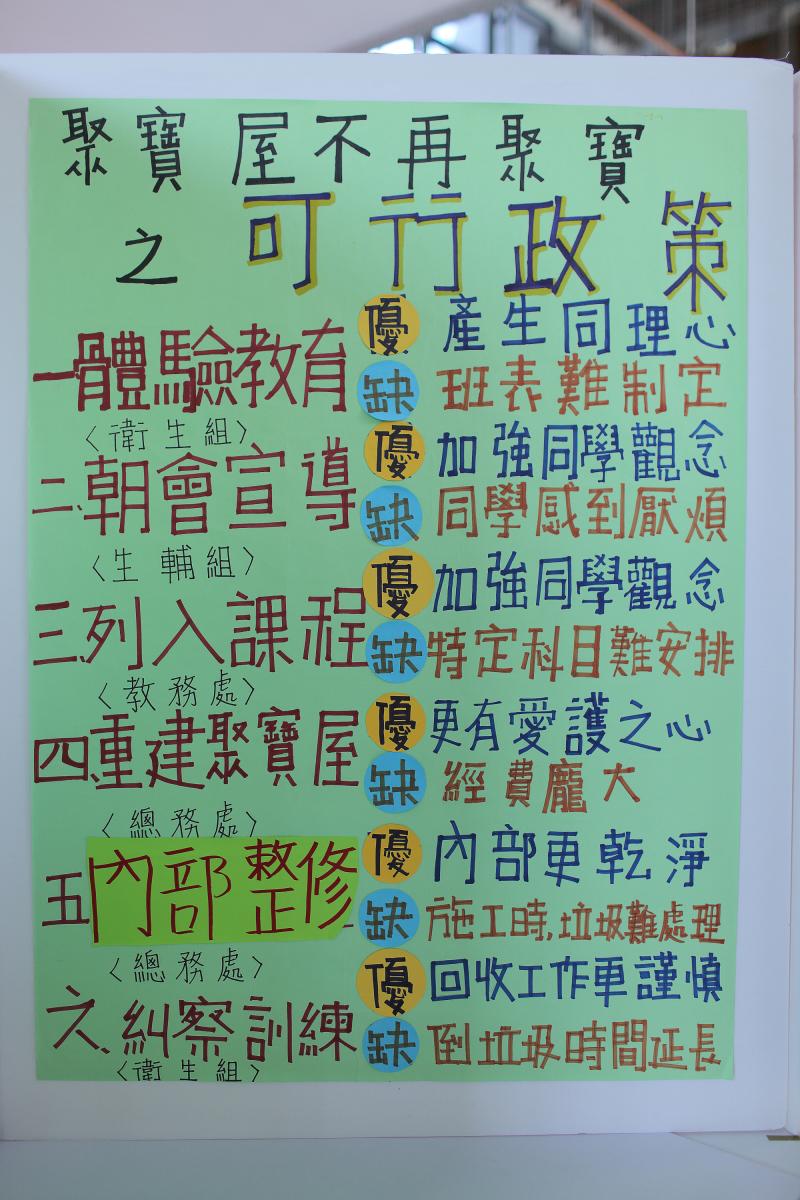 聚寶屋不再聚寶
之可行政策
一.體驗教育
<衛生組>
優 產生同理心
缺 班表難制定
二.朝會宣導
<生輔組>
優 加強同學觀念
缺 同學感到厭煩
三.列入課程
<教務處>
優 加強同學觀念
缺 特定科目難安排
四.重建聚寶屋
<總務處>
優 更有愛護之心
缺 經費龐大
五.內部整修
<總務處>
優 內部更乾淨
缺 施工時,垃圾難處理
六.糾察訓練
<衛生組>
優 回收工作更謹慎
缺 倒垃圾時間延長